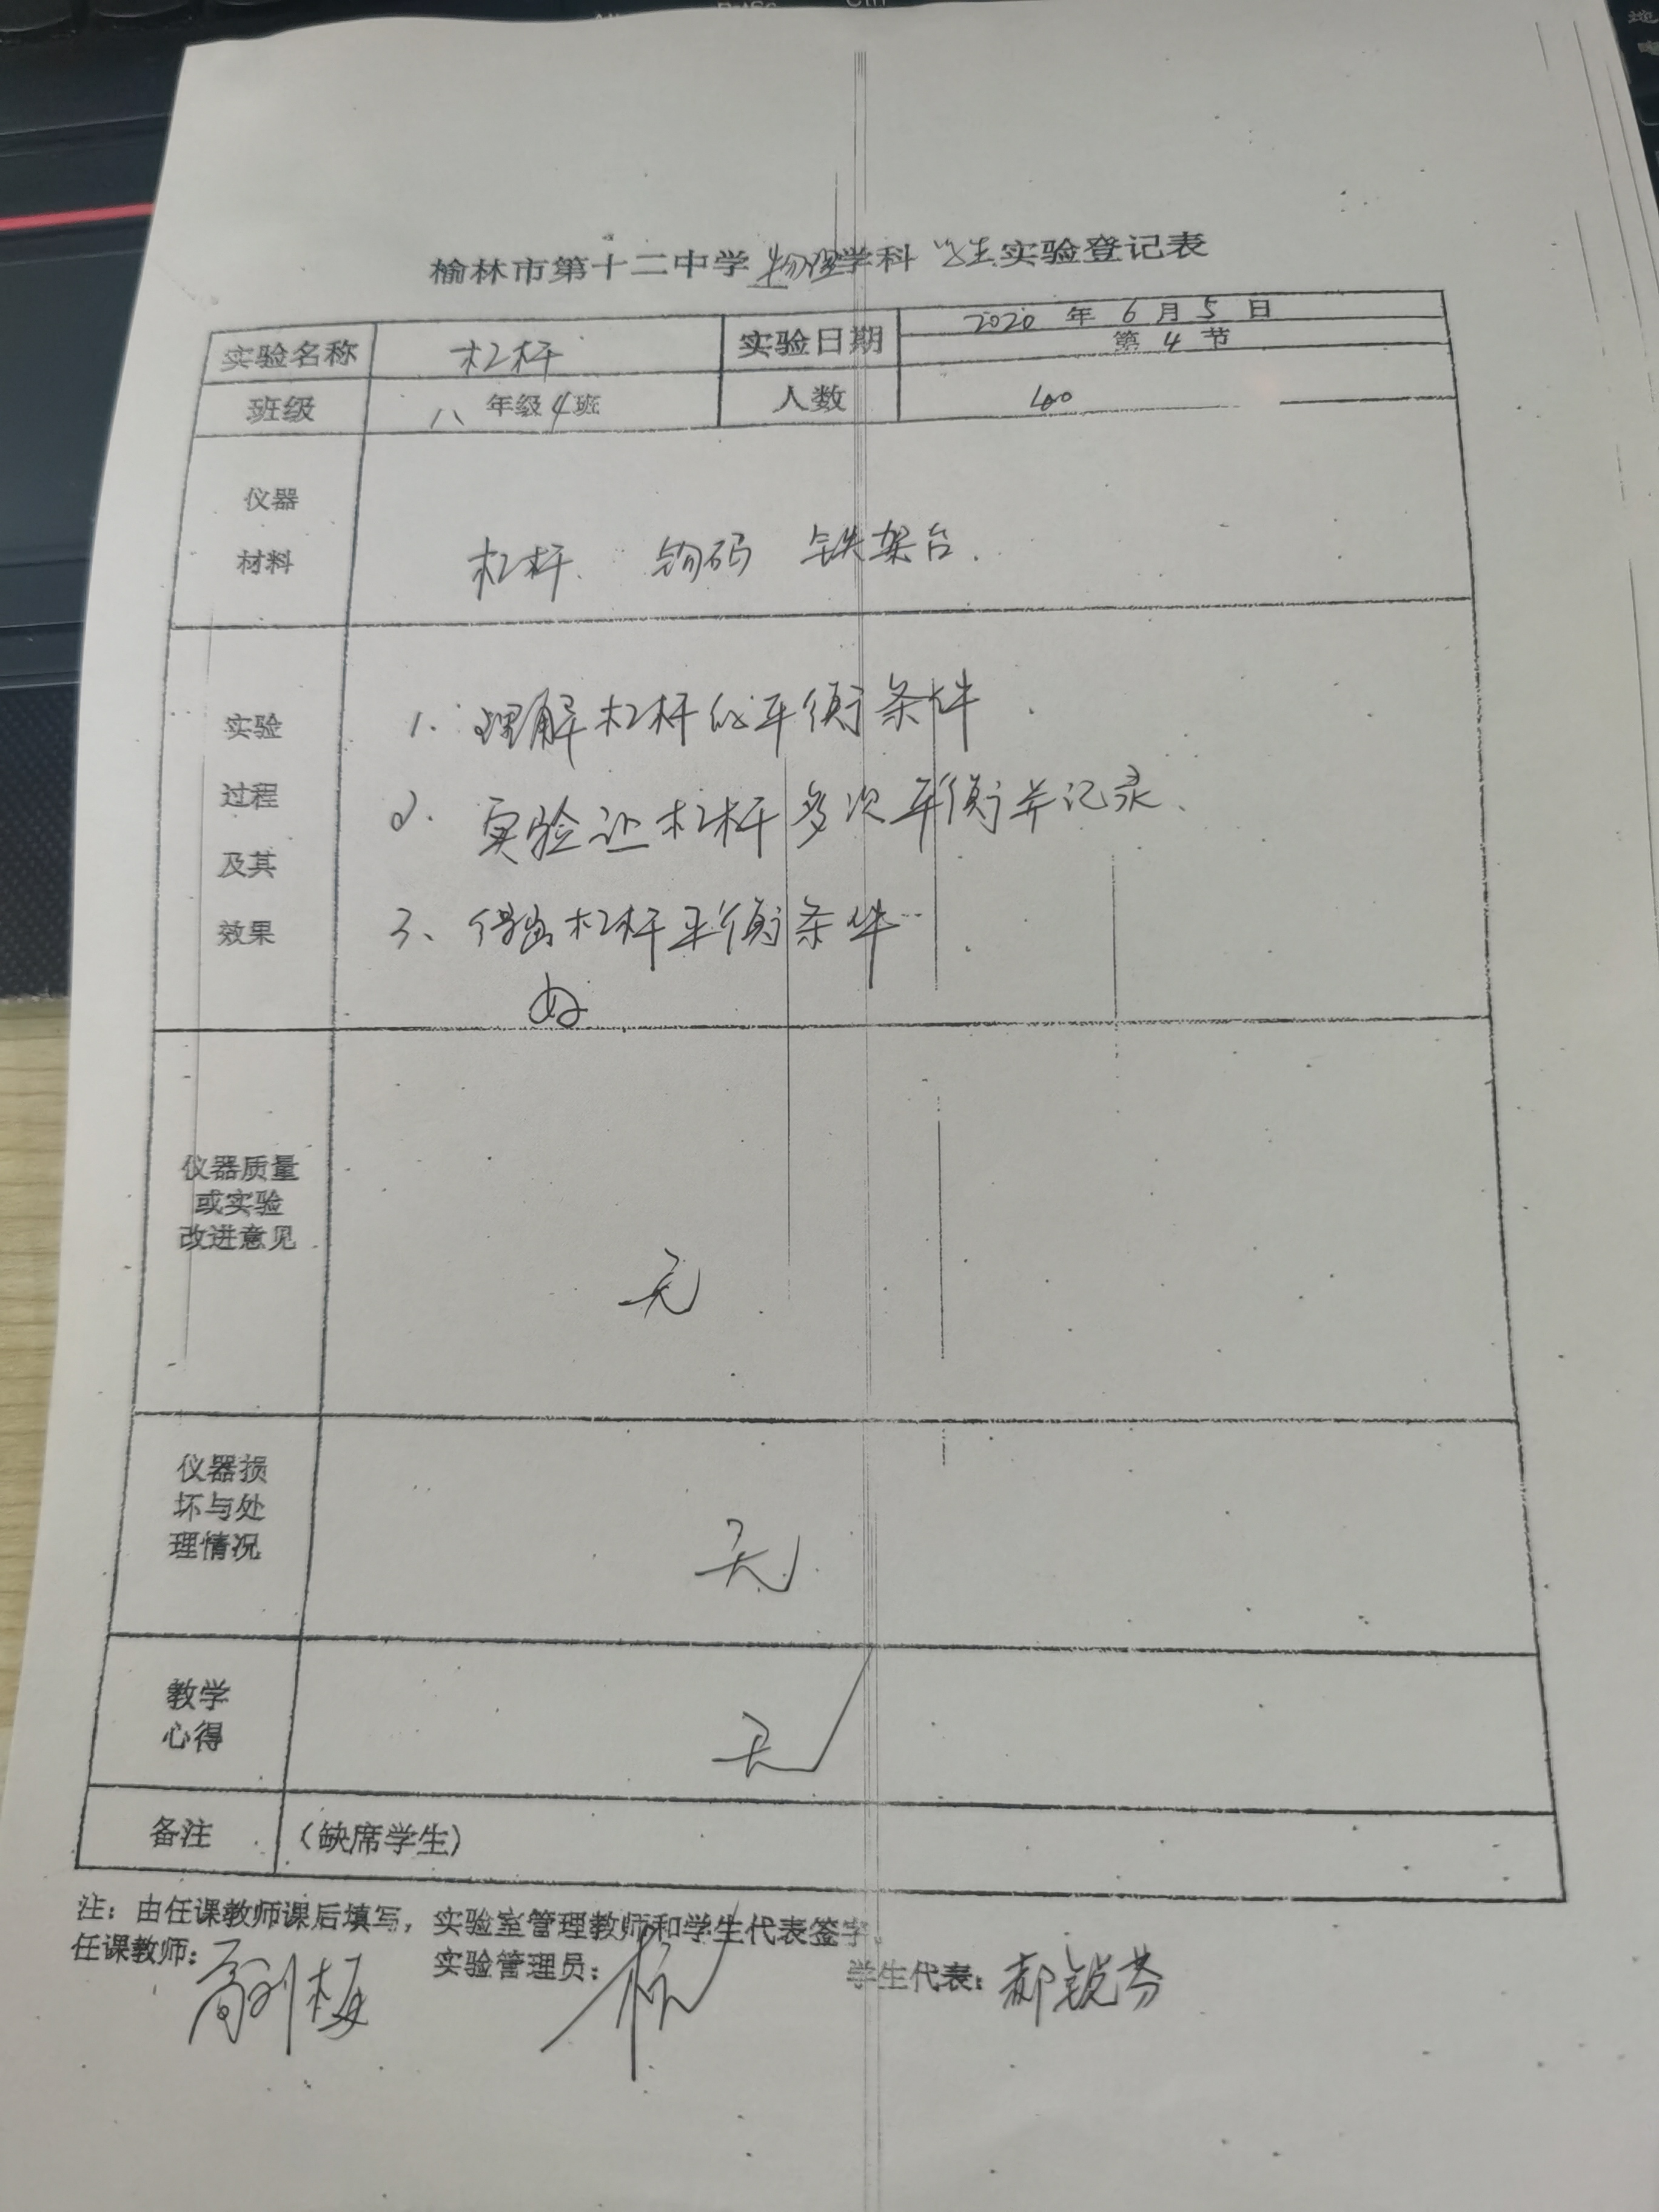 榆林市第十二中学物理学科学生实验登记表
实验名称 杠杆 实验日期 2020年6月5日
第4节
班级 八年级4班 人数 40
仪器
材料
杠杆、 钩码 铁架台.
实验
过程
及其
效果
1. 理解杠杆的平衡条件.
2. 实验让杠杆多次平衡并记录、
3、得出杠杆平衡条件
好
仪器质量
或实验
改进意见
无
仪器损
坏与处
理情况
无
教学
心得
无
备注 (缺席学生)
注：由任课教师课后填写，实验室管理教师和学生代表签字。
任课教师： 实验管理员： 学生代表：郝锐芬